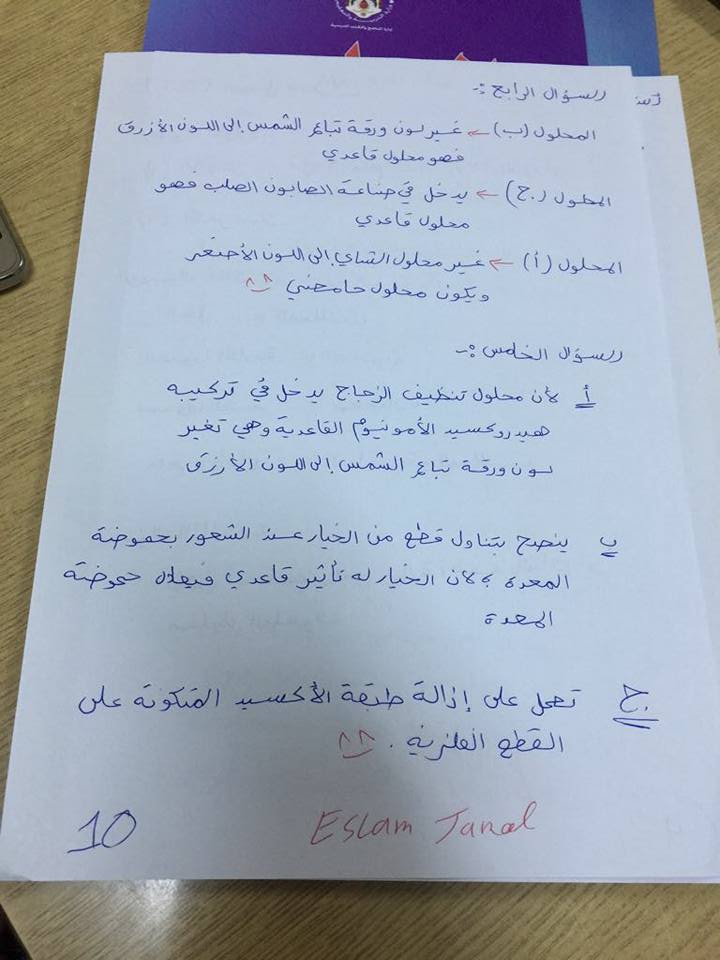 إدارة المناهج والكتب المدرسية
السؤال الرابع :-
المحلول (ب) ← غير لون ورقة تباع الشمس إلى اللون الأزرق
فهو محلول قاعدي
المحلول (ج) ← يدخل في صناعة الصابون الصلب فهو
محلول قاعدي
المحلول (أ) ← غير محلول الشاي إلى اللون الأصفر
ويكون محلول حامضي ^^
السؤال الخامس :-
أ لأن محلول تنظيف الزجاج يدخل في تركيبه
هيدروكسيد الأمونيوم القاعدية وهي تغير
لون ورقة تباع الشمس إلى اللون الأزرق
ب ينصح بتناول قطع من الخيار عند الشعور بحموضة
المعدة ؛ لأن الخيار له تأثير قاعدي فيعادل حموضة
المعدة
ج تعمل على إزالة طبقة الأكسيد المتكونة على
القطع الفلزية . ^^
Eslam Janal
10